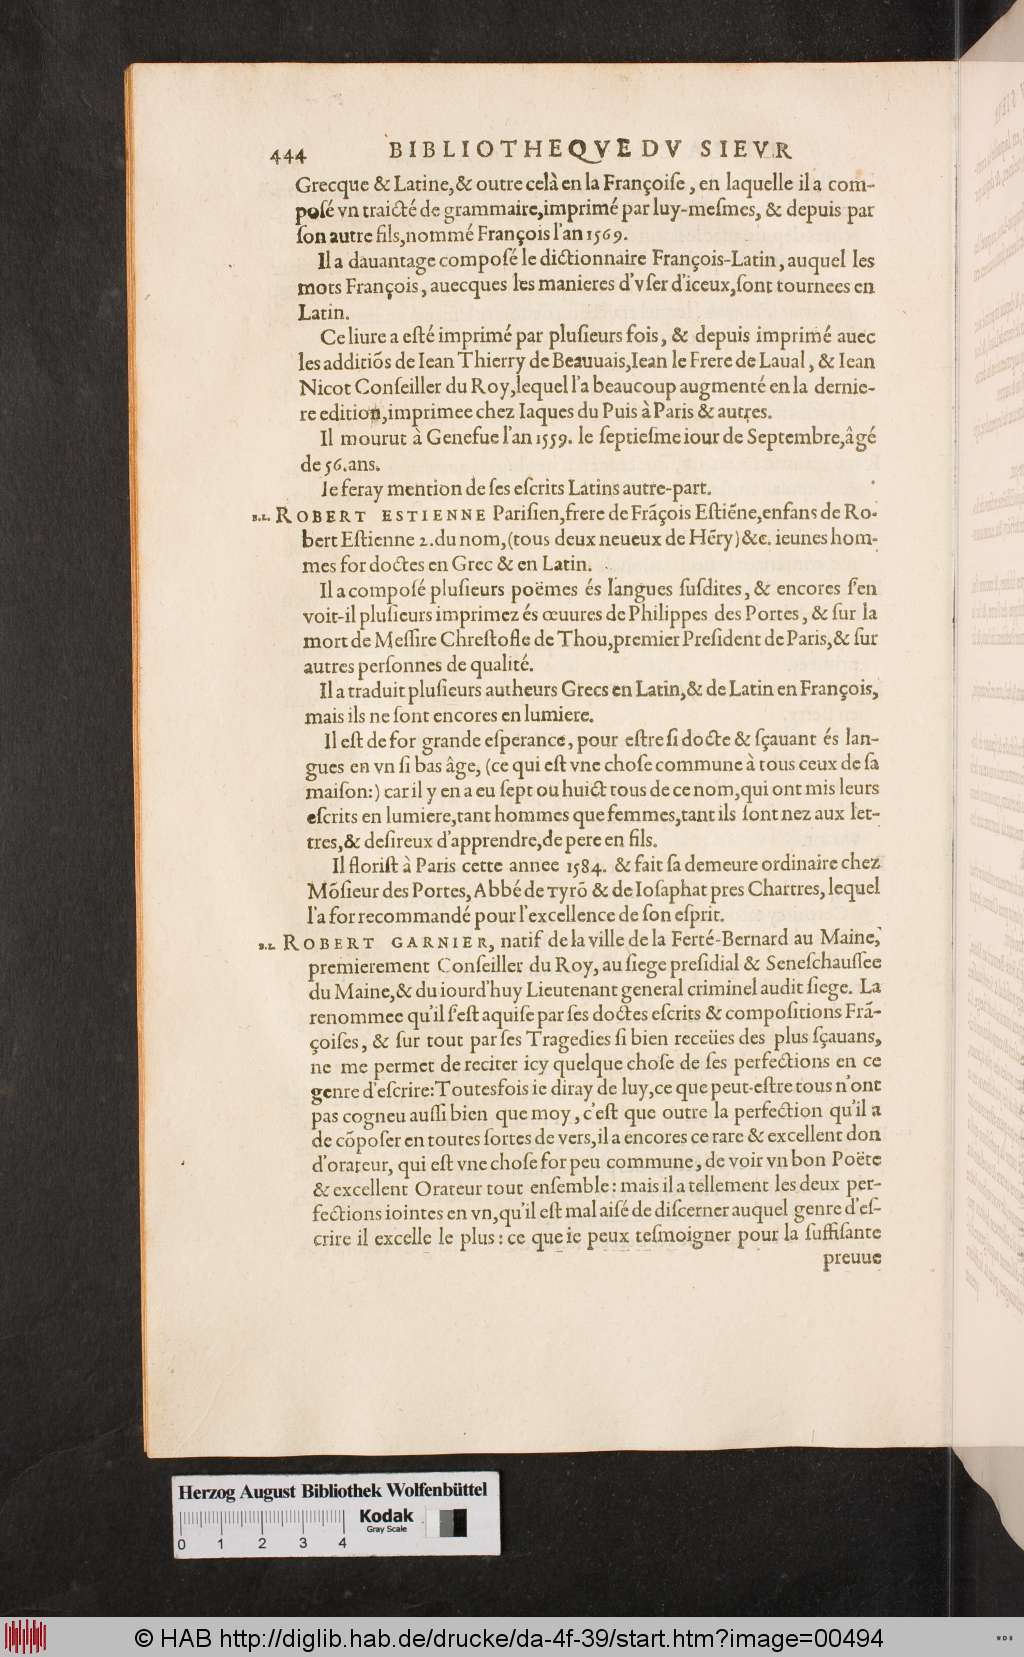 444 BIBLIOTHEQVE DV SIEVR
Grecque & Latine, & outre celà en la Françoiſe, en laquelle il a com-
poſé vn traicté de grammaire, imprimé par luy-meſmes, & depuis par
ſon autre fils, nommé François l'an 1569.
Il a dauantage compoſé le dictionnaire François-Latin, auquel les
mots François, auecques les manieres d'vſer d'iceux, ſont tournees en
Latin.
Ce liure a eſté imprimé par pluſieurs fois, & depuis imprimé auec
les additiõs de Iean Thierry de Beauuais, Iean le Frere de Laual, & Iean
Nicot Conſeiller du Roy, lequel l'a beaucoup augmenté en la dernie-
re edition, imprimee chez Iaques du Puis à Paris & autres.
Il mourut à Geneſue l'an 1559. le ſeptieſme iour de Septembre, âgé
de 56. ans.
Ie feray mention de ſes eſcrits Latins autre-part.
B.L. ROBERT ESTIENNE Pariſien, frere de Frãçois Eſtiẽne, enfans de Ro-
bert Eſtienne 2. du nom, (tous deux neueux de Hẽry) &c. ieunes hom-
mes for doctes en Grec & en Latin.
Il a compoſé pluſieurs poëmes és langues ſuſdites, & encores ſ'en
voit-il pluſieurs imprimez és œuures de Philippes des Portes, & ſur la
mort de Meſſire Chreſtofle de Thou, premier Preſident de Paris, & ſur
autres perſonnes de qualité.
Il a traduit pluſieurs autheurs Grecs en Latin, & de Latin en François,
mais ils ne ſont encores en lumiere.
Il eſt de for grande eſperance, pour eſtre ſi docte & ſçauant és lan-
gues en vn ſi bas âge, (ce qui eſt vne choſe commune à tous ceux de ſa
maiſon:) car il y en a eu ſept ou huict tous de ce nom, qui ont mis leurs
eſcrits en lumiere, tant hommes que femmes, tant ils ſont nez aux let-
tres, & deſireux d'apprendre, de pere en fils.
Il floriſt à Paris cette annee 1584. & fait ſa demeure ordinaire chez
Mõſieur des Portes, Abbé de Tyrõ & de Ioſaphat pres Chartres, lequel
l'a for recommandé pour l'excellence de ſon eſprit.
B.L. ROBERT GARNIER, natif de la ville de la Ferté-Bernard au Maine,
premierement Conſeiller du Roy, au ſiege preſidial & Seneſchauſſee
du Maine, & du iourd'huy Lieutenant general criminel audit ſiege. La
renommee qu'il ſ'eſt aquiſe par ſes doctes eſcrits & compoſitions Frã-
çoiſes, & ſur tout par ſes Tragedies ſi bien receües des plus ſçauans,
ne me permet de reciter icy quelque choſe de ſes perfections en ce
genre d'eſcrire: Toutesfois ie diray de luy, ce que peut-eſtre tous n'ont
pas cogneu auſſi bien que moy, c'eſt que outre la perfection qu'il a
de cõpoſer en toutes ſortes de vers, il a encores ce rare & excellent don
d'orateur, qui eſt vne choſe for peu commune, de voir vn bon Poëte
& excellent Orateur tout enſemble: mais il a tellement les deux per-
fections iointes en vn, qu'il eſt mal aiſé de diſcerner auquel genre d'eſ-
crire il excelle le plus: ce que ie peux teſmoigner pour la ſuffiſante
preuue
Herzog August Bibliothek Wolfenbüttel
0 1 2 3 4
Kodak
Gray Scale
© HAB http://diglib.hab.de/drucke/da-4f-39/start.htm?image=00494